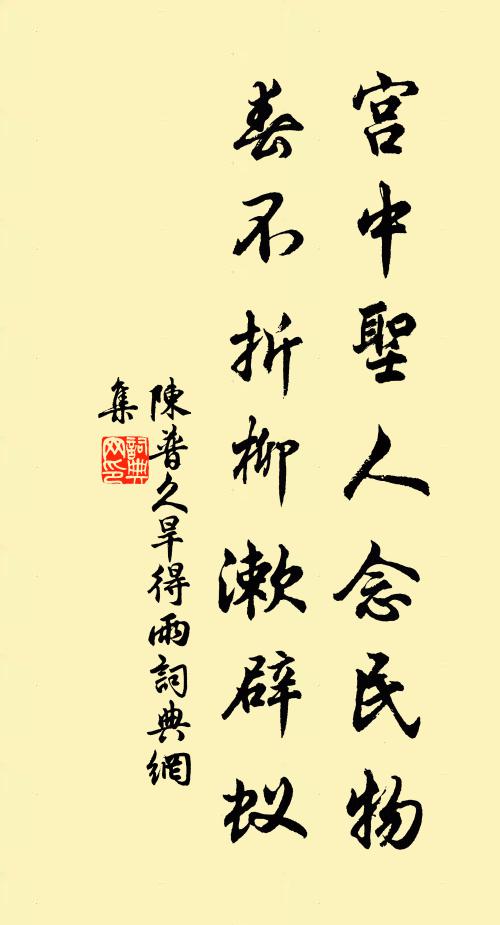 宫中聖人念民物
春不折柳漱辟蚁
陳普久旱得雨詞典網
集
詞典網印